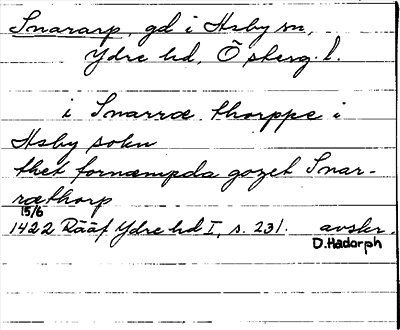 Snararp, gd i Asby sn,
Ydre hd, Östergl.
i Snarræ thorppe i
Asby sokn
thet fornæmpda gozet Snar-
ræthorp
15/6
1422 Rääf Ydre hd I, s. 231. avskr.
D. Hadorph